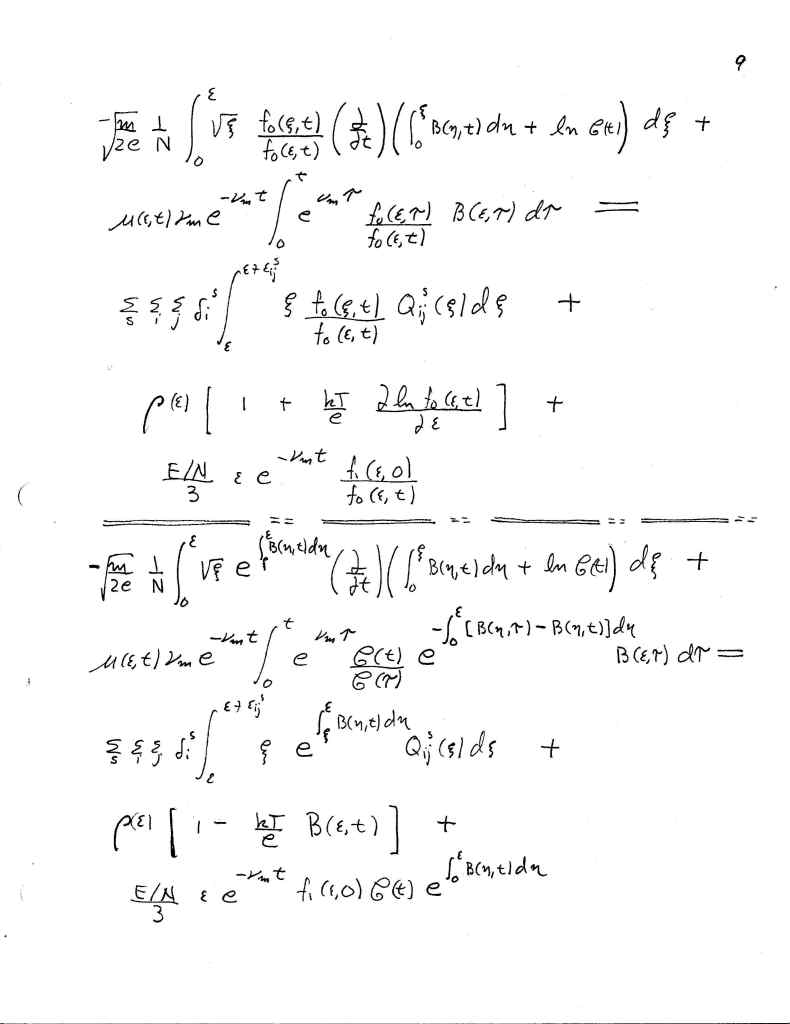 9
-√(m/2e) 1/N ∫₀^ε √ξ f₀(ξ,t)/f₀(ε,t) (∂/∂t)(∫₀^ξ B(η,t) dη + ln G(t)) dξ +
μ(ε,t) ν_m e^(-ν_m t) ∫₀^t e^(ν_m τ) f₀(ε,τ)/f₀(ε,t) B(ε,τ) dτ =
Σ_s Σ_i Σ_j δ_i^s ∫_ε^(ε+ε_ij^s) ξ f₀(ξ,t)/f₀(ε,t) Q_ij^s(ξ) dξ +
ρ(ε) [ 1 + kT/e ∂ ln f₀(ε,t)/∂ε ] +
E/N/3 ε e^(-ν_m t) f₁(ε,0)/f₀(ε,t)
-√(m/2e) 1/N ∫₀^ε √ξ e^(∫_ξ^ε B(η,t)dη) (∂/∂t)(∫₀^ξ B(η,t) dη + ln G(t)) dξ +
μ(ε,t) ν_m e^(-ν_m t) ∫₀^t e^(ν_m τ) G(t)/G(τ) e^(-∫₀^ε [B(η,τ) - B(η,t)]dη) B(ε,τ) dτ =
Σ_s Σ_i Σ_j δ_i^s ∫_ε^(ε+ε_ij^s) ξ e^(∫_ξ^ε B(η,t)dη) Q_ij^s(ξ) dξ +
ρ(ε) [ 1 - kT/e B(ε,t) ] +
E/N/3 ε e^(-ν_m t) f₁(ε,0) G(t) e^(∫₀^ε B(η,t)dη)